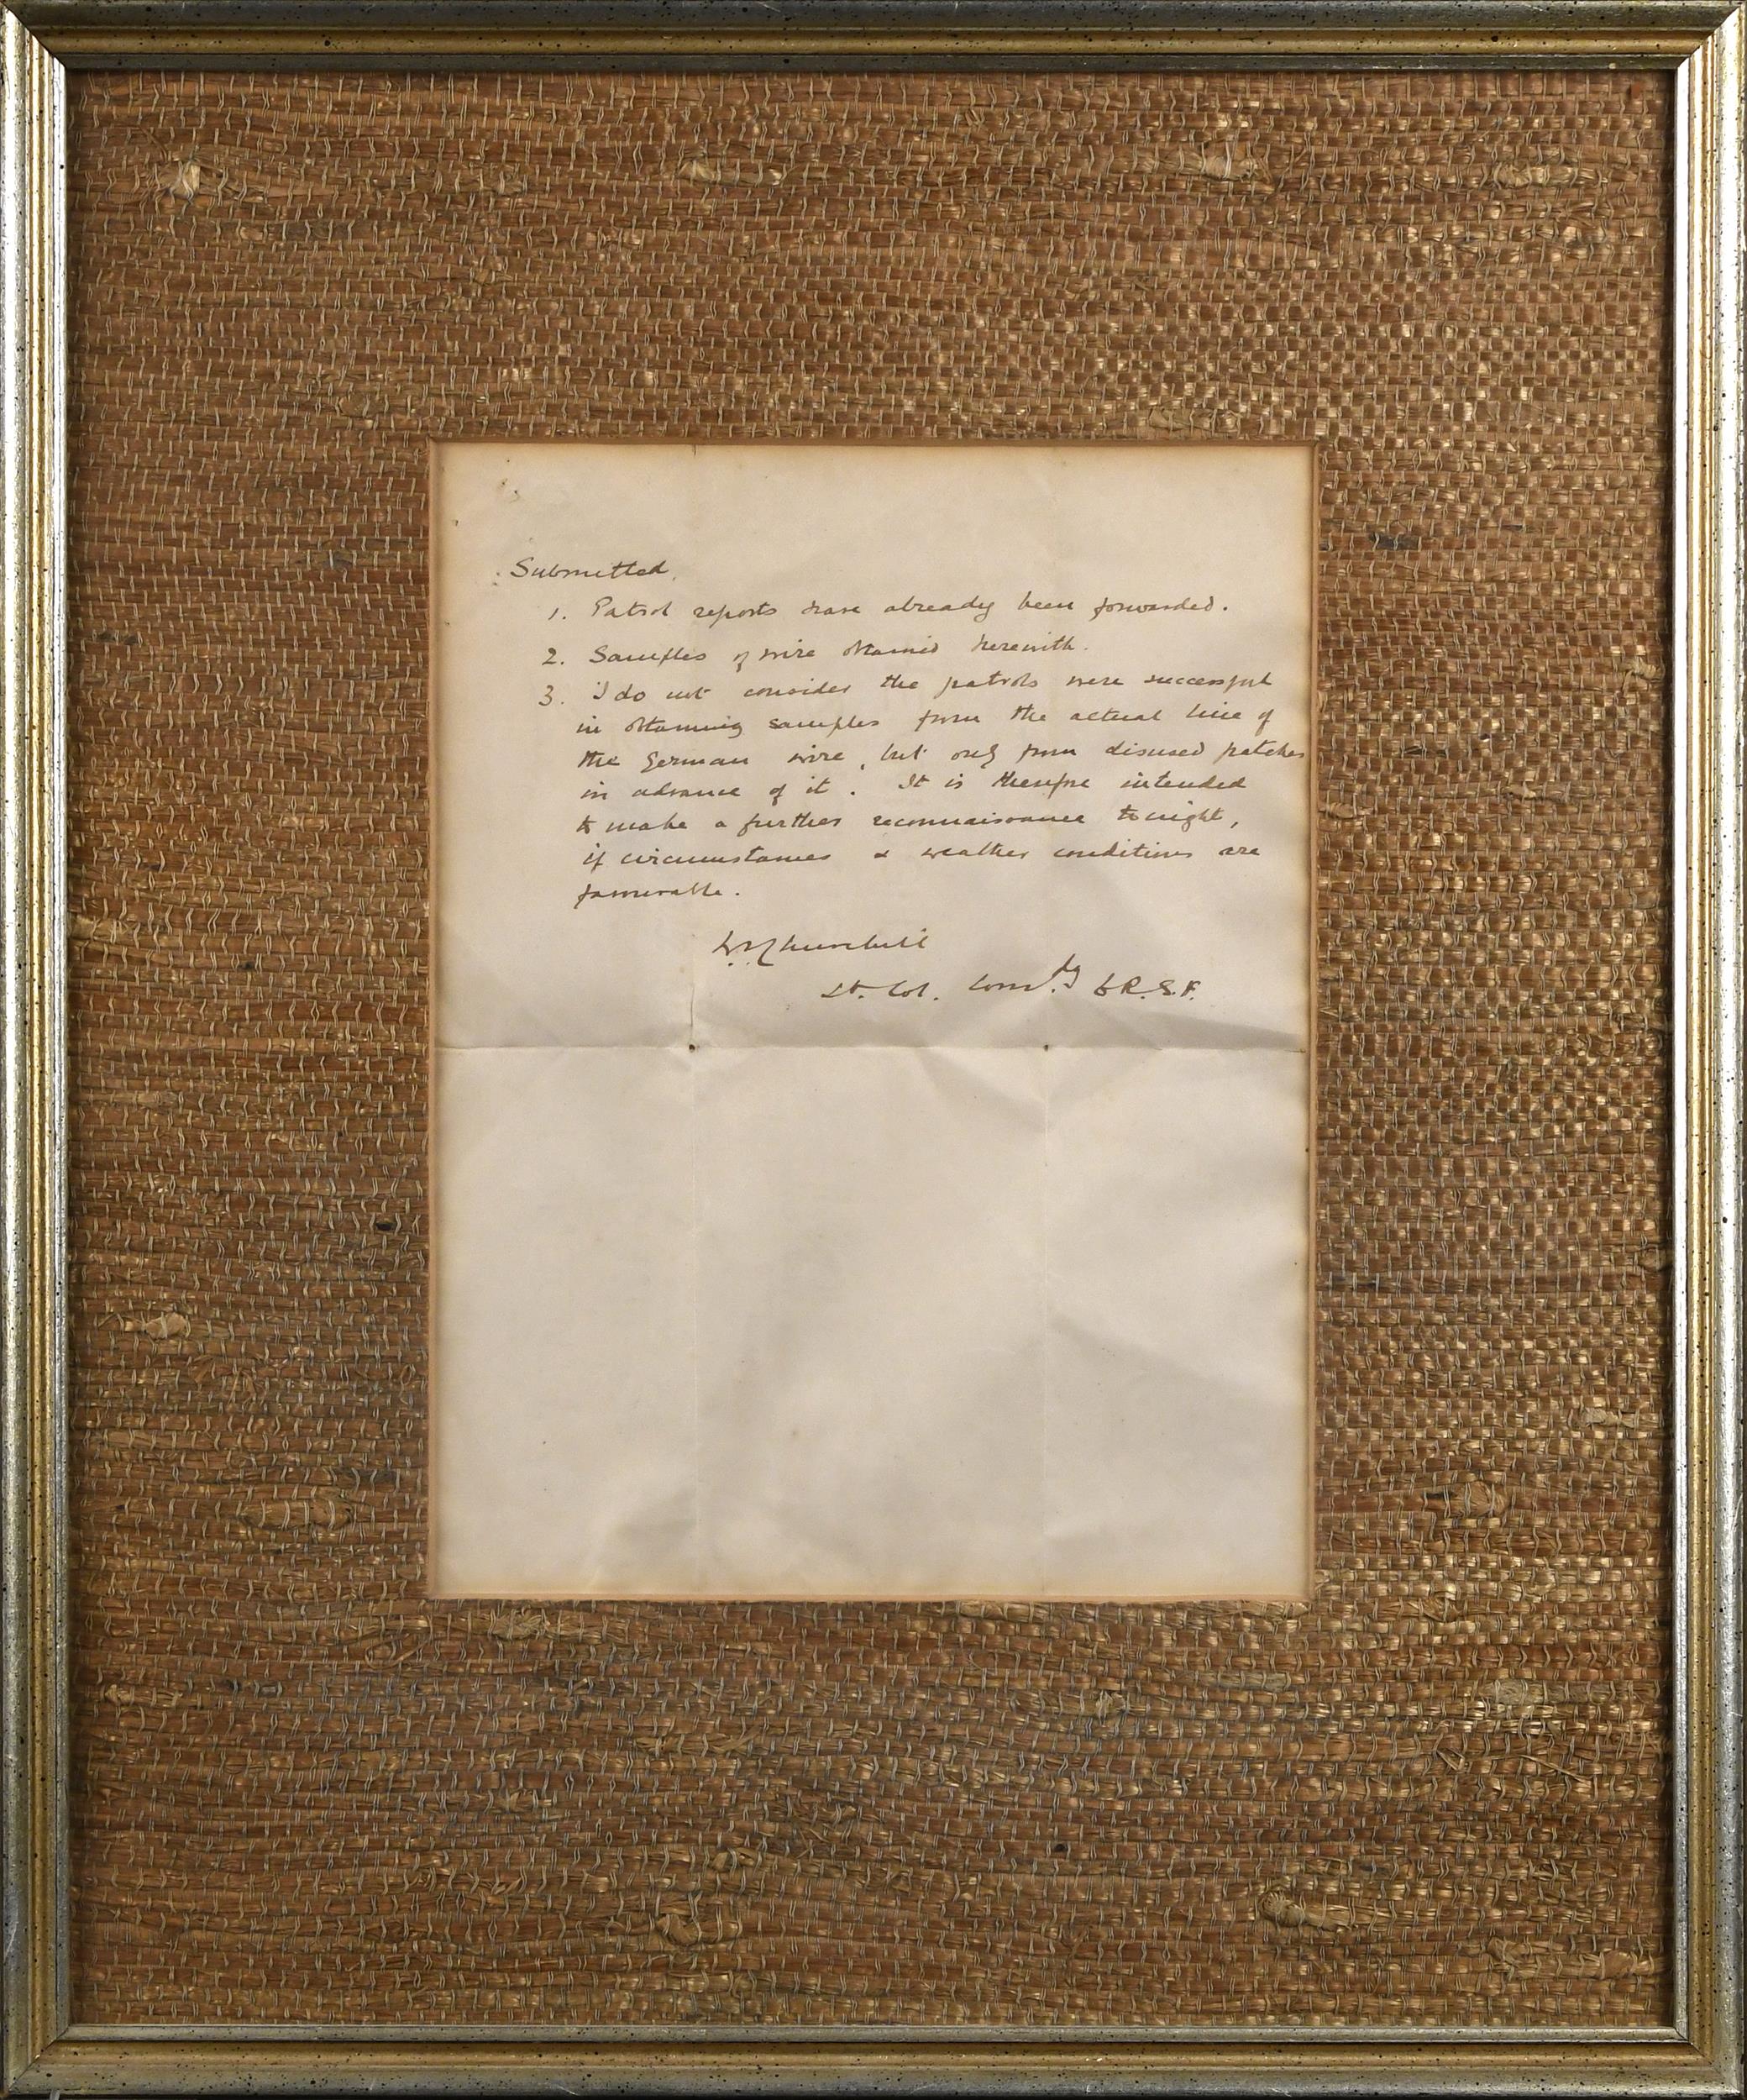 Submitted.
1. Patrol reports have already been forwarded.
2. Samples of wire obtained herewith.
3. I do not consider the patrols were successful
in obtaining samples from the actual line of
the German wire, but only from disused patches
in advance of it. It is therefore intended
to make a further reconnaissance tonight,
if circumstances & weather conditions are
favourable.
W.S. Churchill
Lt. Col. Comdg 6 R.S.F.